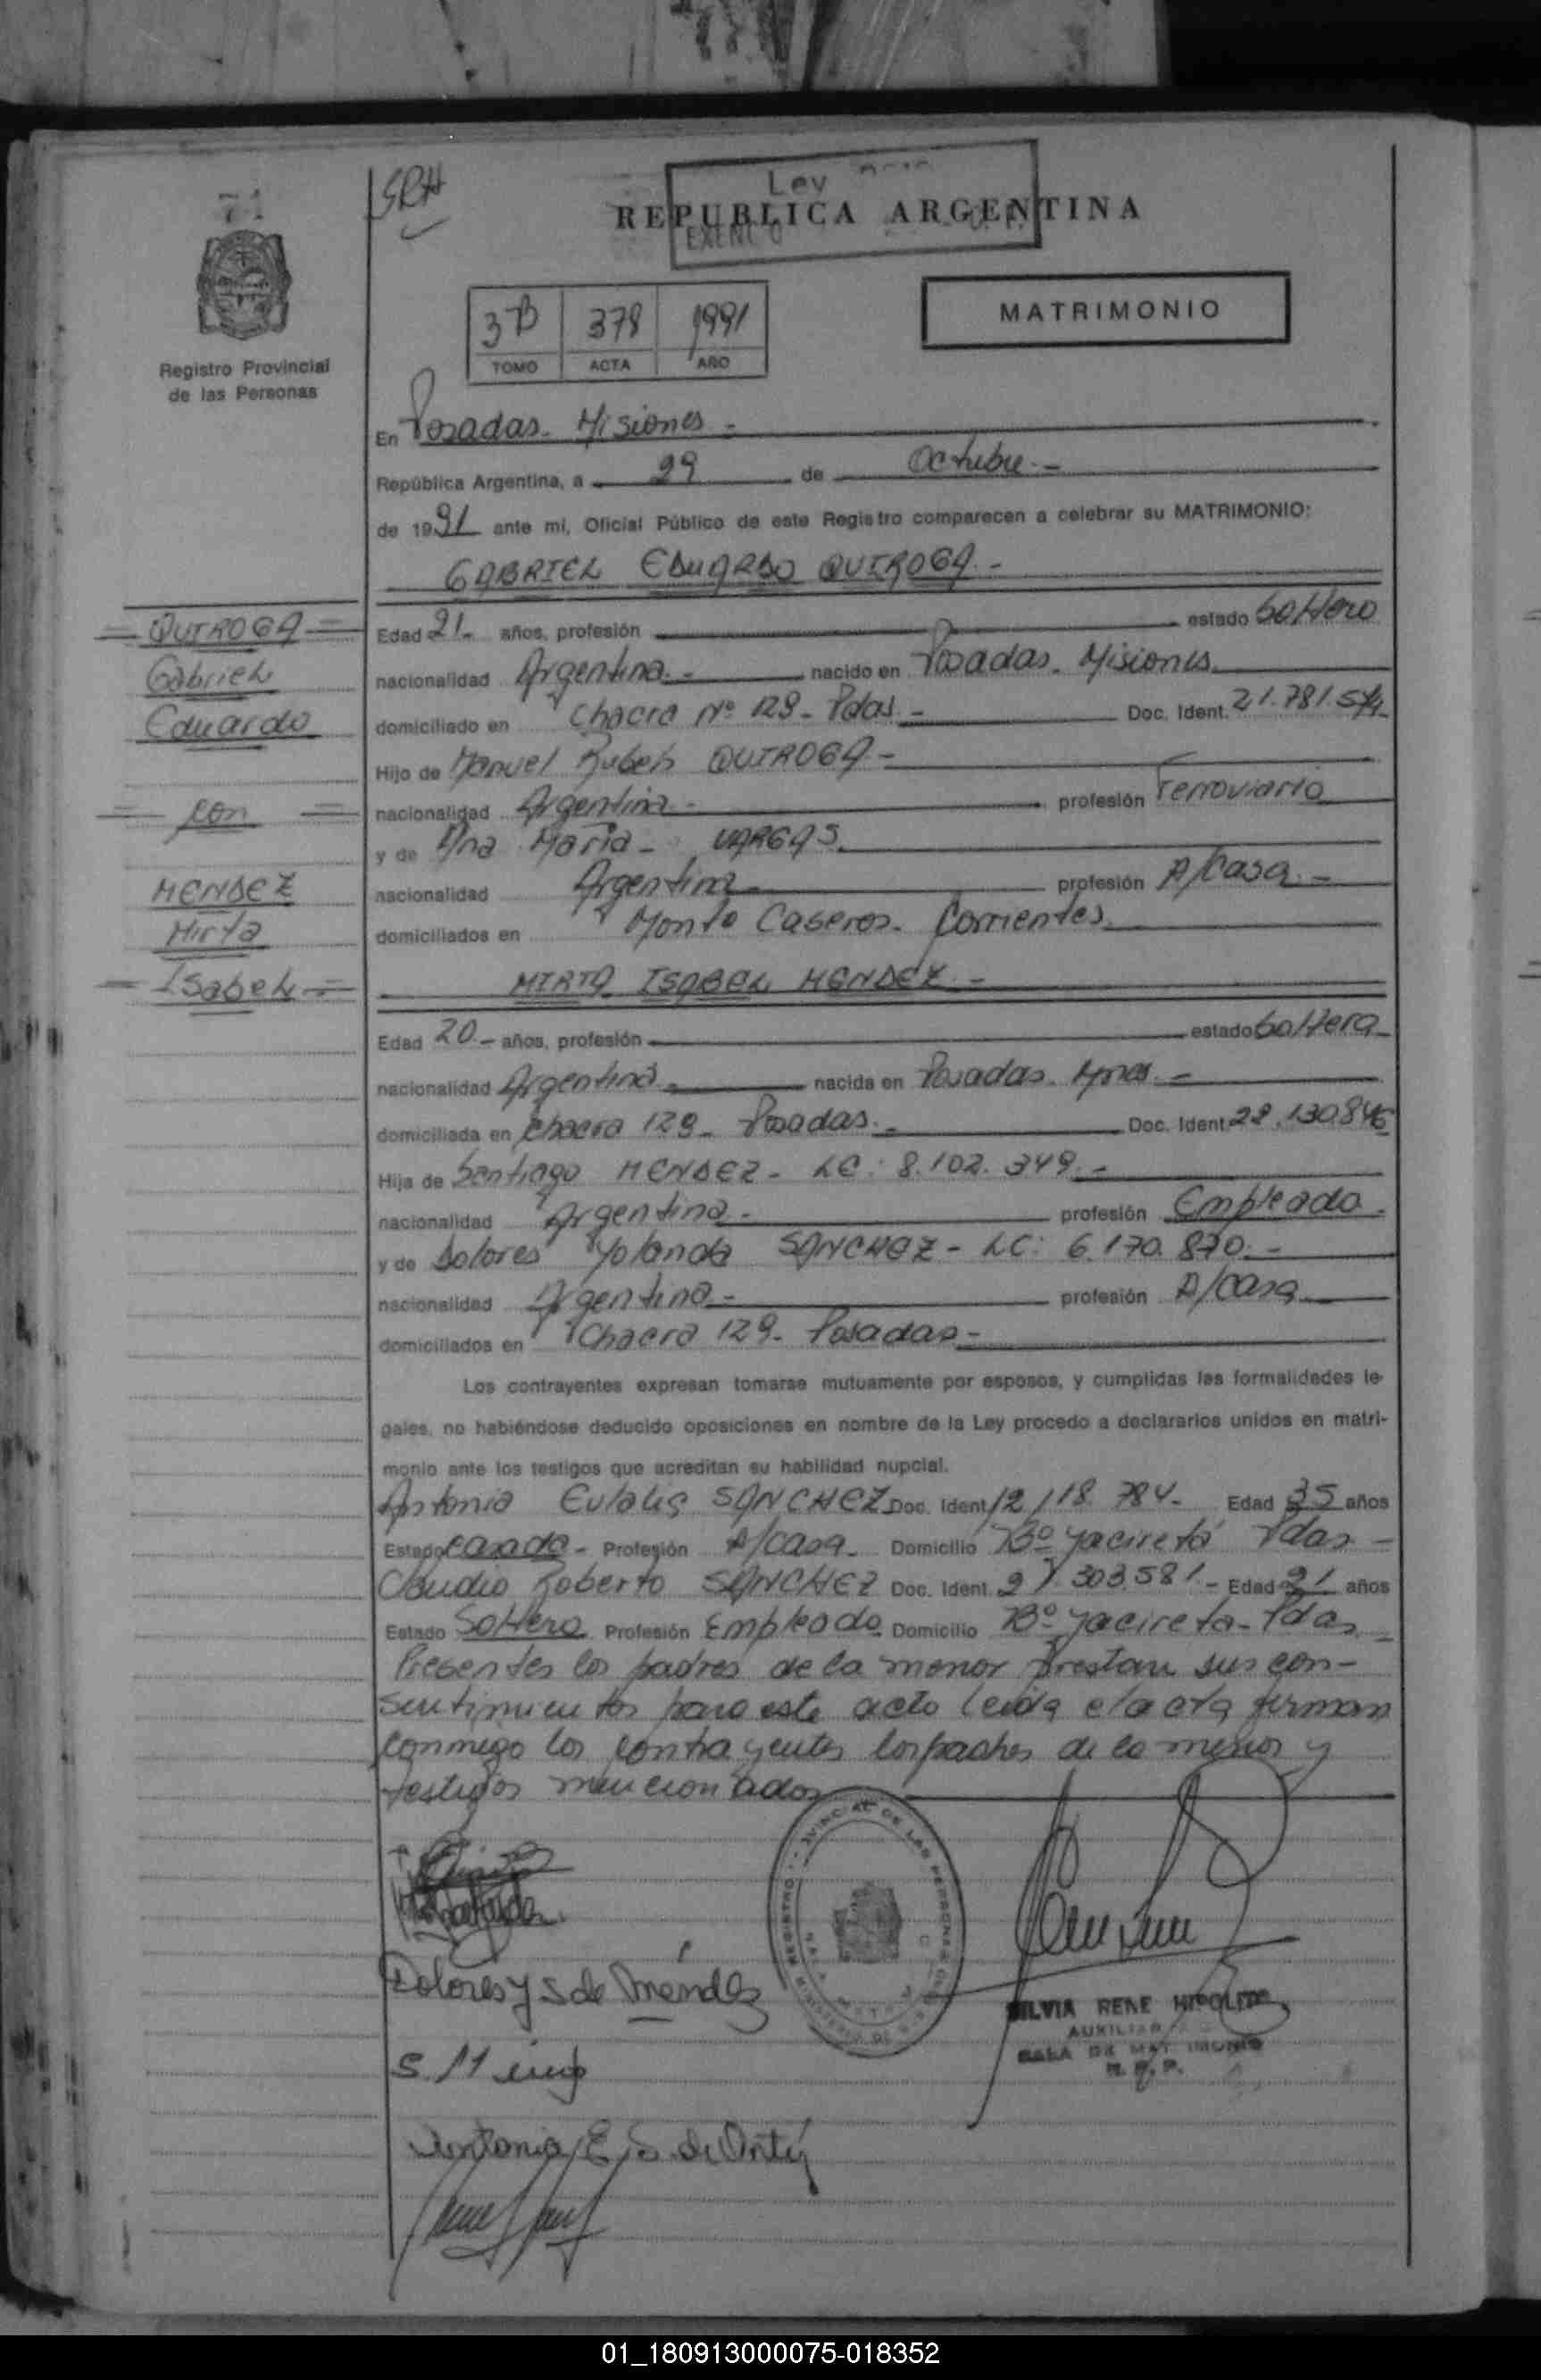 71
SRH
Ley
REPUBLICA ARGENTINA
Registro Provincial
de las Personas
3B 378 1991
TOMO ACTA AÑO
MATRIMONIO
En Posadas - Misiones -
República Argentina, a 29 de Octubre.-
de 1991 ante mi, Oficial Público de este Registro comparecen a celebrar su MATRIMONIO:
GABRIEL EDUARDO QUIROGA.-
= QUIROGA =
Gabriel
Eduardo
= con =
MENDEZ
Mirta
= Isabel =
Edad 21.- años, profesión estado Soltero
nacionalidad Argentina.- nacido en Posadas. Misiones.
domiciliado en Chacra Nº 129 - Pdas.- Doc. Ident. 21.781.574
Hijo de Manuel Ruben QUIROGA -
nacionalidad Argentina.- profesión Ferroviario
y de Ana Maria - VARGAS.
nacionalidad Argentina.- profesión A/Casa.-
domiciliados en Monte Caseros. Corrientes.
MIRTA ISABEL MENDEZ -
Edad 20.- años, profesión estado Soltera
nacionalidad Argentina.- nacida en Posadas. Mnes.-
domiciliada en Chacra 129 - Posadas.- Doc. Ident. 22.130.846
Hija de Santiago MENDEZ - LE: 8.102.349.-
nacionalidad Argentina.- profesión Empleado.
y de Dolores Yolanda SANCHEZ - LC: 6.170.870.-
nacionalidad Argentina.- profesión A/Casa
domiciliados en Chacra 129 - Posadas -
Los contrayentes expresan tomarse mutuamente por esposos, y cumplidas las formalidades le-
gales, no habiéndose deducido oposiciones en nombre de la Ley procedo a declararlos unidos en matri-
monio ante los testigos que acreditan su habilidad nupcial.
Antonia Eulalia SANCHEZ Doc. Ident. 12.118.784.- Edad 35 años
Estado casada - Profesión A/casa. Domicilio Bº Yacireta Pdas -
Claudio Roberto SANCHEZ Doc. Ident. 21.303.581.- Edad 21 años
Estado Soltero Profesión Empleado Domicilio Bº Yacireta - Pdas -
Presentes los padres de la menor prestan sus con-
sentimientos para este acto leida el acta firman
conmigo los contrayentes los padres de la menor y
testigos mencionados
Dolores Y S de Méndez
Antonia E S. de
SILVIA RENE HIPOLITO
AUXILIAR
SALA DE MATRIMONIO
R. P. P.
01_180913000075-018352